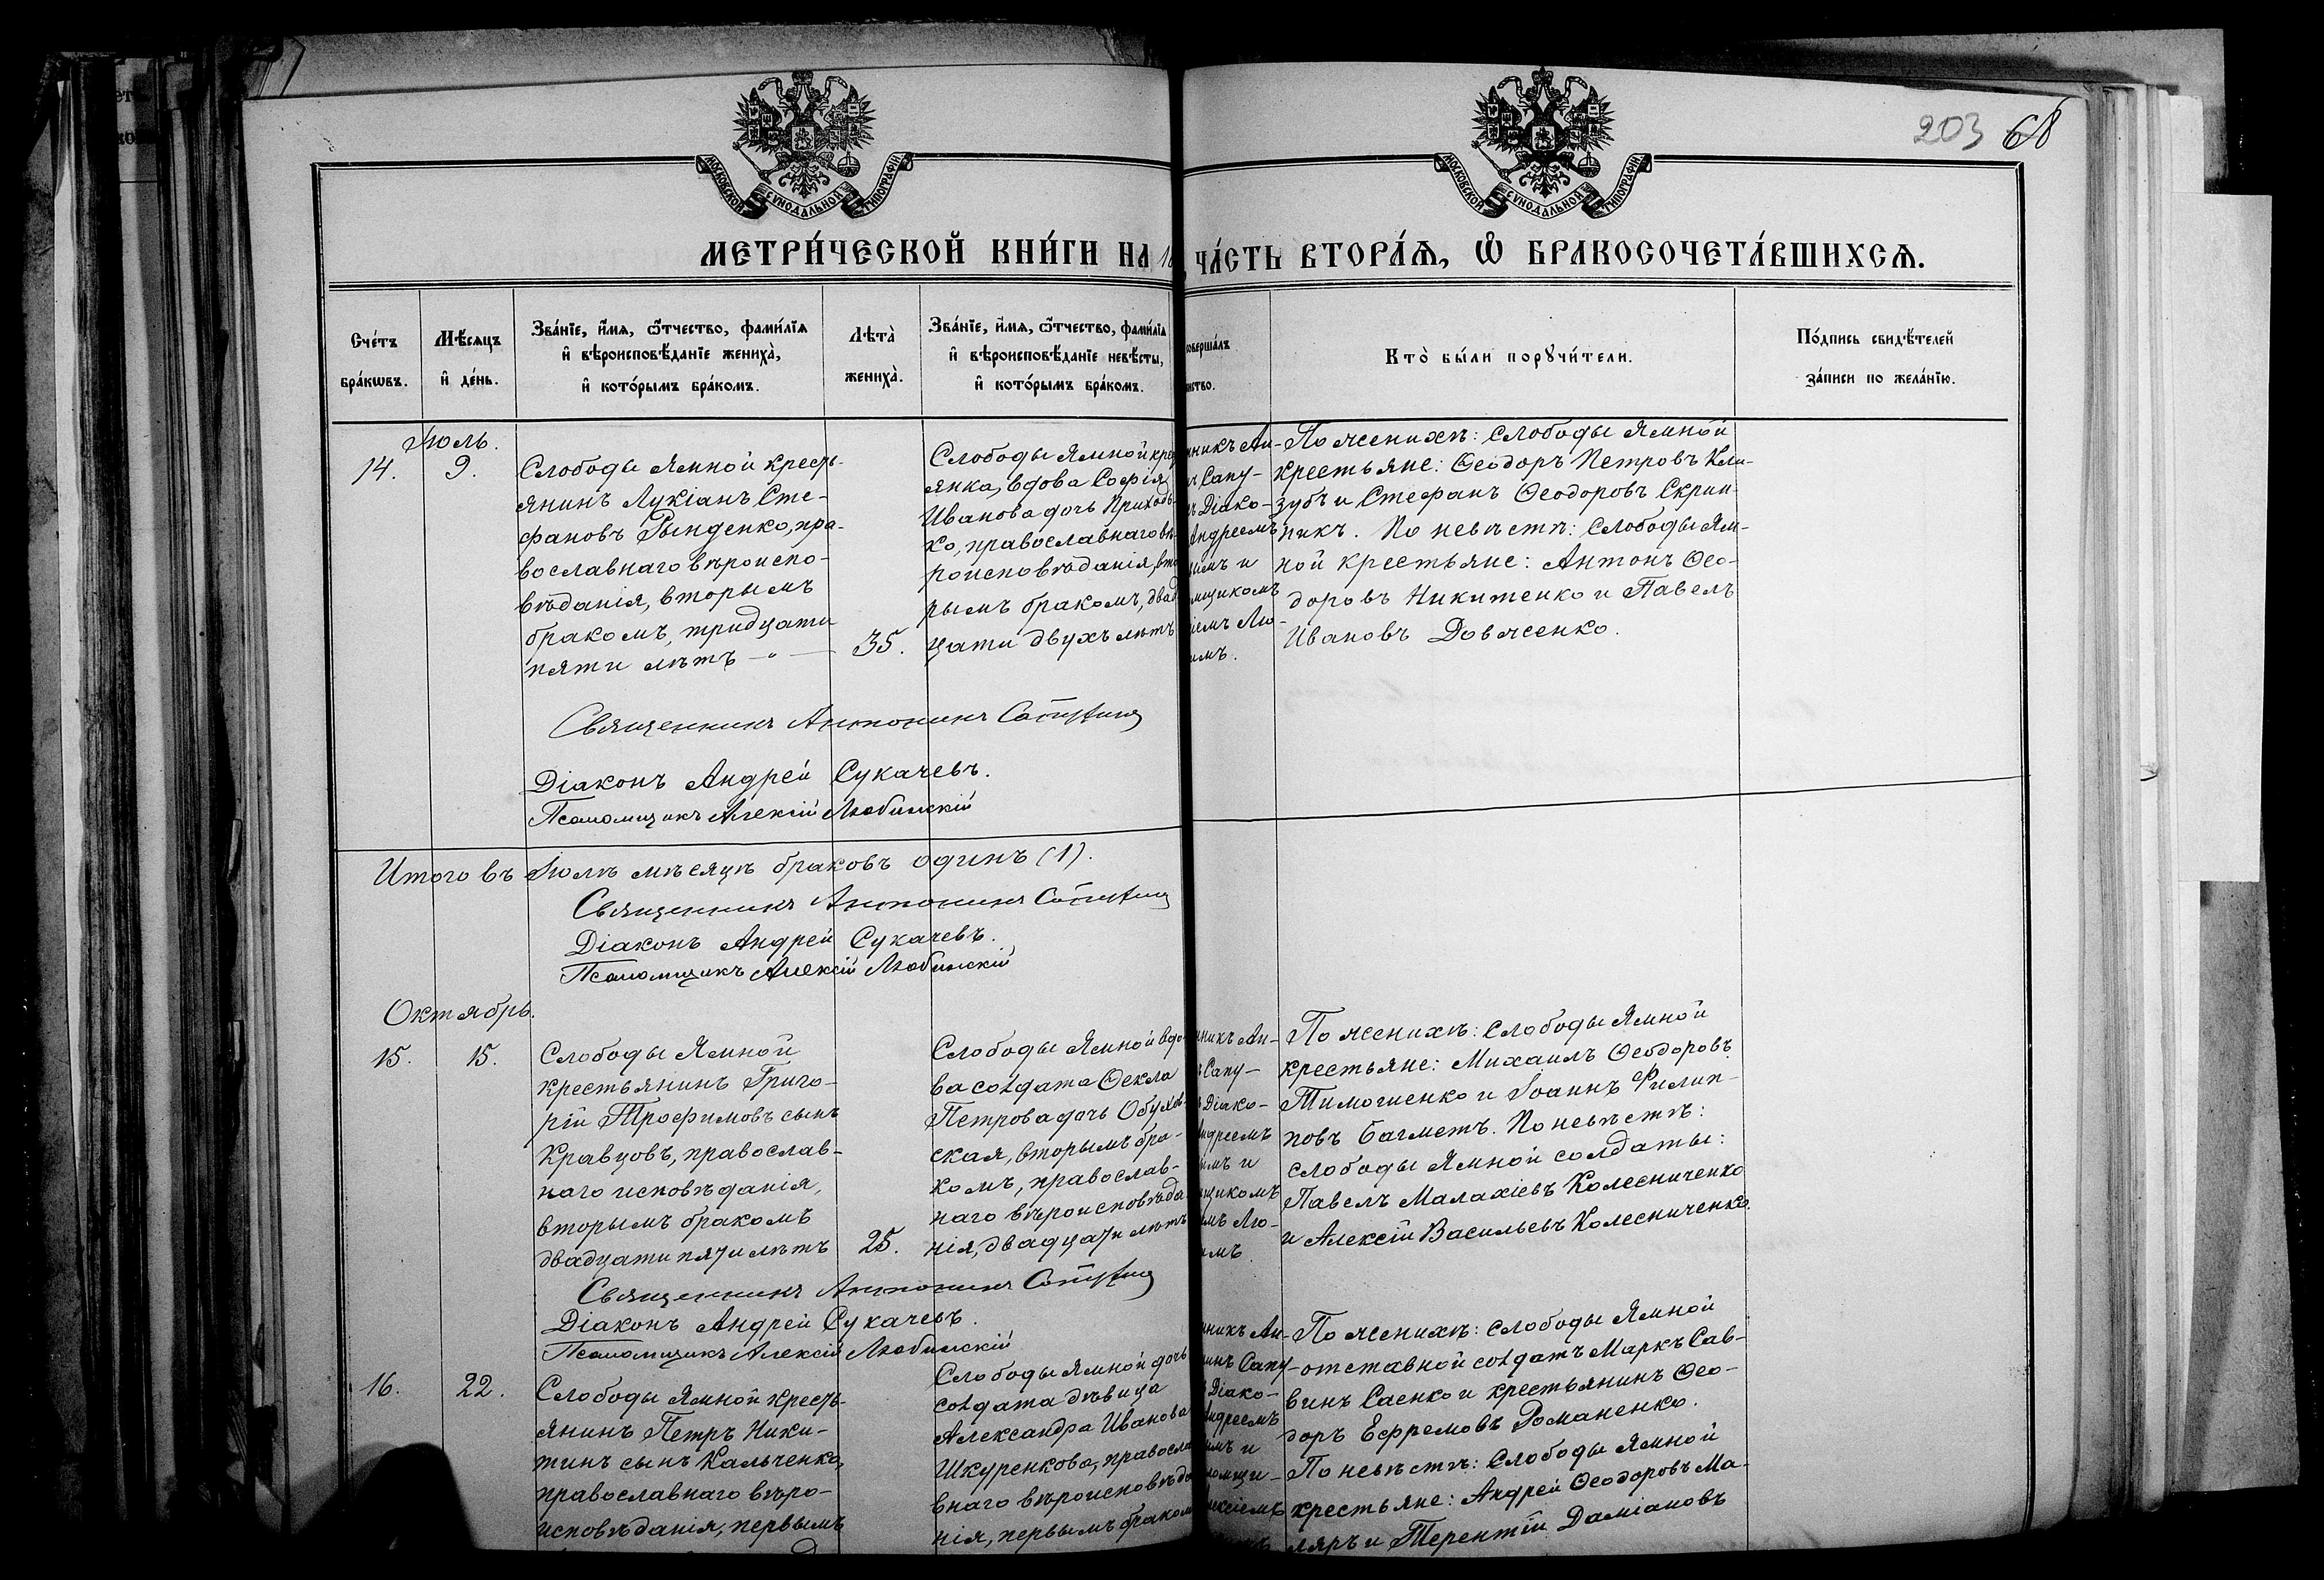 203 68
МОСКОВСКОЙ СѴНОДАЛЬНОЙ ТИПОГРАФІИ
МОСКОВСКОЙ СѴНОДАЛЬНОЙ ТИПОГРАФІИ
МЕТРИ́ЧЕСКОЙ КНИ́ГИ НА
ЧА́СТЬ ВТОРА́Ѧ, Ѡ҆ БРАКОСОЧЕТА́ВШИХСѦ.
Сче́тъ
бра́кѡвъ.
Мѣ́сяцъ
и҆ де́нь.
Зва́нїе, и҆́мѧ, ѻ҆́тчество, фами́лїѧ
и҆ вѣроисповѣ́данїе жениха̀,
и҆ кото́рымъ бра́комъ.
Лѣта̀
жениха̀.
Зва́нїе, и҆́мѧ, ѻ҆́тчество, фами́лїѧ
и҆ вѣроисповѣ́данїе невѣ́сты,
и҆ кото́рымъ бра́комъ.
совершалъ
нство.
Кто̀ бы́ли порꙋчи́тели.
По́дпись свидѣ́телей
за́писи по жела́нїю.
Іюль.
14.
9.
Слободы Ямной кресть-
янинъ Лукіанъ Сте-
фановъ Рынденко, пра-
вославнаго вѣроиспо-
вѣданія, вторымъ
бракомъ, тридцати
пяти лѣтъ — " —
35.
Слободы Ямной кре
янка, вдова Софія
Иванова дочь Приходь
ко, православнаго вѣ-
роисповѣданія, вто
рымъ бракомъ, двад
цати двухъ лѣтъ
никъ Ан-
ъ Сапу-
ъ Діако-
Андреемъ
имъ и
мщикомъ
іемъ Лю-
имъ.
По женихѣ: слободы Ямной
крестьяне: Ѳеодоръ Петровъ Кли-
зубъ и Стефанъ Ѳеодоровъ Скрип-
никъ. По невѣстѣ: слободы Ям-
ной крестьяне: Антонъ Ѳео-
доровъ Никитенко и Павелъ
Ивановъ Довженко.
Священникъ Антонинъ
Діаконъ Андрей Сукачевъ.
Псаломщикъ Алексій Любимскій
Итого въ Іюлѣ мѣсяцѣ браковъ одинъ (1).
Священникъ Антонинъ
Діаконъ Андрей Сукачевъ.
Псаломщикъ Алексій Любимскій
Октябрь.
15.
15.
Слободы Ямной
крестьянинъ Григо-
рій Трофимовъ сынъ
Кравцовъ, православ-
наго исповѣданія,
вторымъ бракомъ
двадцати пяти лѣтъ
25.
Слободы Ямной вдо-
ва солдата Ѳекла
Петрова дочь Обухов-
ская, вторымъ бра-
комъ, православ-
наго вѣроисповѣда
нія, двадцати лѣтъ
никъ Ан-
ъ Сапу-
ъ Діако-
Андреемъ
имъ и
щикомъ
мъ Лю-
имъ
По женихѣ: слободы Ямной
крестьяне: Михаилъ Ѳеодоровъ
Тимошенко и Іоаннъ Филип-
повъ Багметъ. По невѣстѣ:
слободы Ямной солдаты:
Павелъ Малахіевъ Колесниченко
и Алексій Васильевъ Колесниченко.
Священникъ Антонинъ
Діаконъ Андрей Сукачевъ.
Псаломщикъ Алексій Любимскій
16.
22.
Слободы Ямной кресть-
янинъ Петръ Ники-
тинъ сынъ Кальченко,
православнаго вѣро-
исповѣданія, первымъ
Слободы Ямной дочь
солдата дѣвица
Александра Иванова
Шкуренкова, правосла
внаго вѣроисповѣда
нія, первымъ браком
никъ Ан-
инъ Сапу-
Діако-
Андреемъ
имъ и
ломщи-
лексіемъ
По женихѣ: слободы Ямной
отставной солдатъ Маркъ Сав-
винъ Саенко и крестьянинъ Ѳео-
доръ Ефремовъ Романенко.
По невѣстѣ: слободы Ямной
крестьяне: Андрей Ѳеодоровъ Ма-
ляръ и Терентій Даміановъ